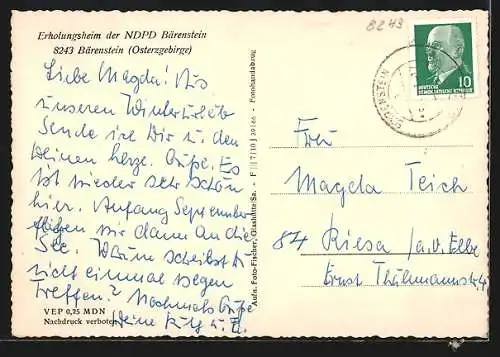 8243
Erholungsheim der NDPD Bärenstein
8243 Bärenstein (Osterzgebirge)
Liebe Magda! Aus
unserem Winterurlaub
sende ich Dir u. den
Deinen herzl. Grüße. Es
ist wieder sehr schön
hier. Anfang September
fliegen wir dann an die
See. Wann schreibst Du
nicht einmal wegen
Treffen? Nochmals Grüße
Deine
VEP 0,25 MDN
Nachdruck verboten
Aufn. Foto-Fischer, Glashütte/Sa. - F 7/10 39/66 - Fotohandabzug
BÄRENSTEIN
10
DEUTSCHE
DEMOKRATISCHE REPUBLIK
Frau
Magda Teich
84 Riesa /a.d. Elbe
Ernst Thälmannstr.